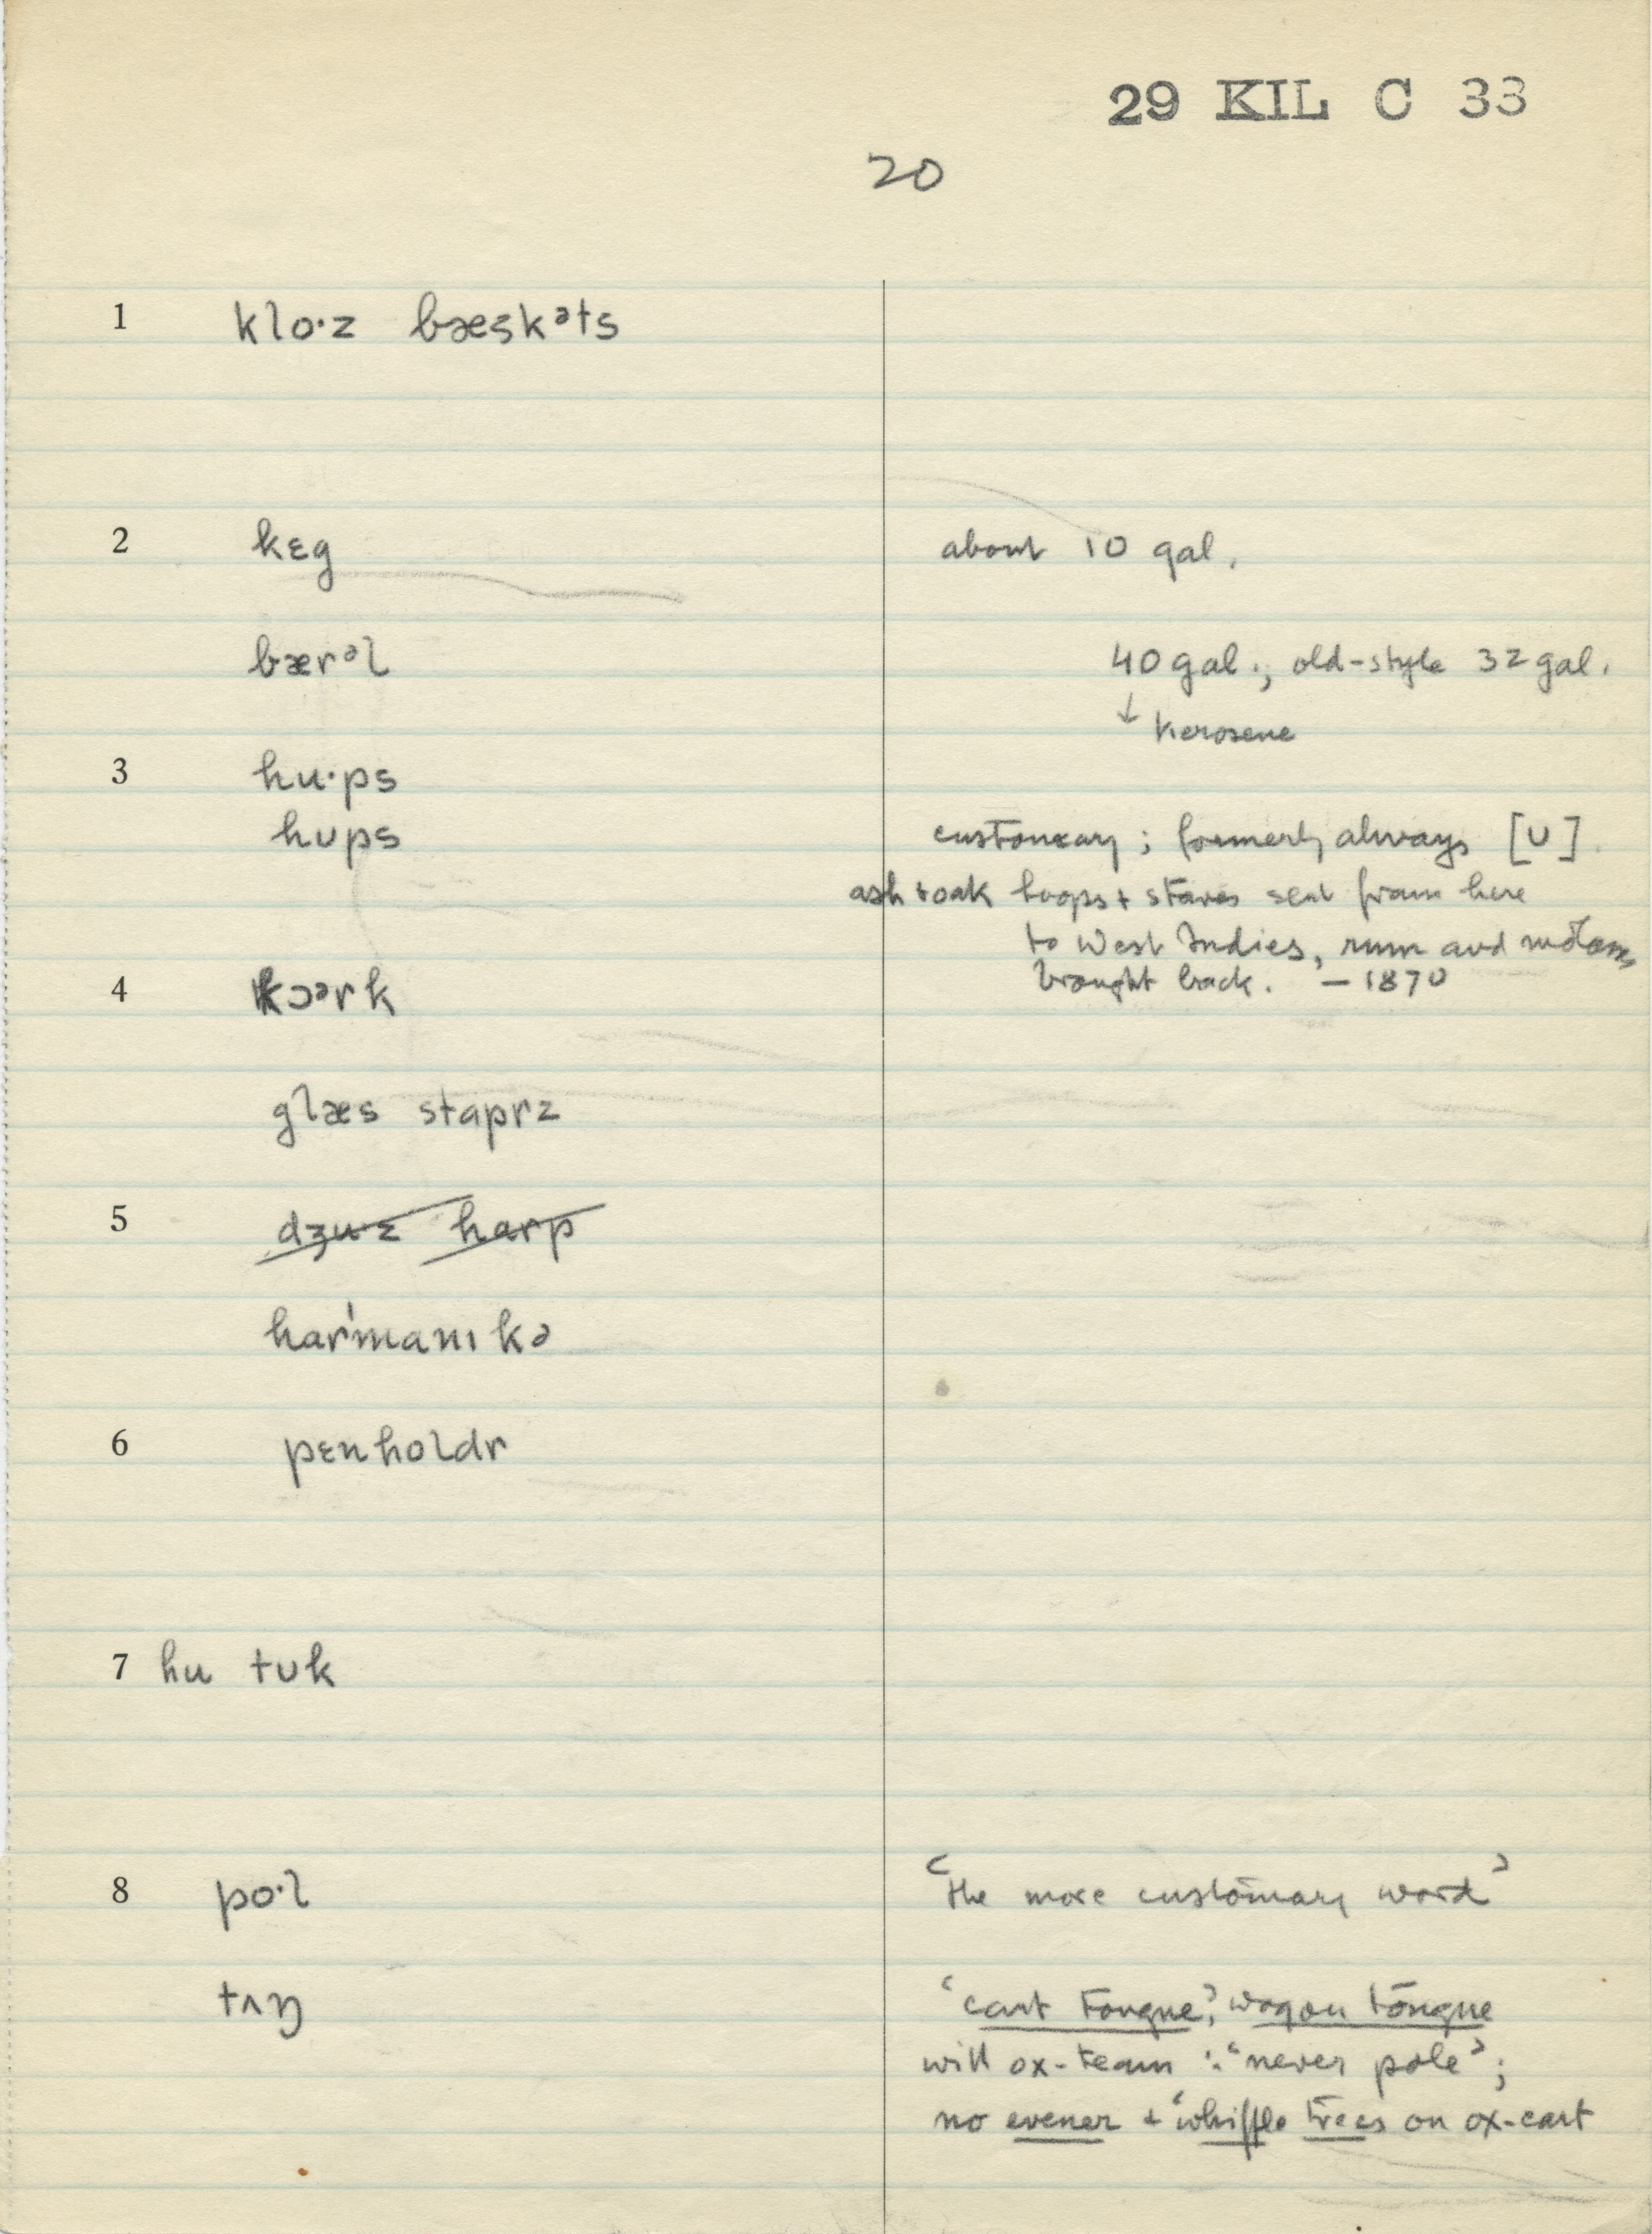 29 KIL C 33
20
1 klo·z bæskəts
2 kɛg about 10 gal.
bærəl 40 gal.; old-style 32 gal.
↓ kerosene
3 hu·ps
hʊps customary; formerly always [ʊ]
ash + oak hoops + staves sent from here
to West Indies, rum and
4 kɔərk brought back. – 1870
glæs stɑprz
5 dʒu·z hɑrp
hɑr'mɑnɪkə
6 pɛnholdr
7 hu tʊk
8 po·l ‘the more customary word’
tʌŋ ‘cart tongue’, wagon tongue
with ox-team : ‘never pole’;
no evener + ‘whiffle trees on ox-cart